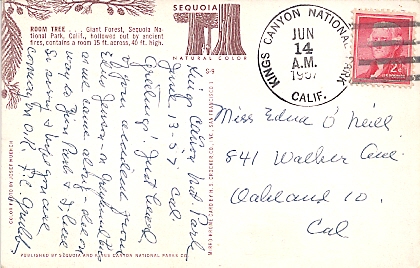 ROOM TREE . . . Giant Forest, Sequoia Na-
tional Park, Calif., hollowed out by ancient
fires, contains a room 15 ft. across, 40 ft. high.
SEQUOIA
NATURAL COLOR
KINGS CANYON NATIONAL PARK
JUN
14
A.M.
1957
CALIF.
2¢
Kings Canyon Nat. Park
June 13-57 Cal.
Greetings! Just heard
of your accident from
as we came along - are on
way to Yose Park &
So sorry & hope you are
coming O.K.
Miss Edna O'Neill
841 Walker Ave.
Oakland 10.
Cal
PUBLISHED BY SEQUOIA AND KINGS CANYON NATIONAL PARKS CO.